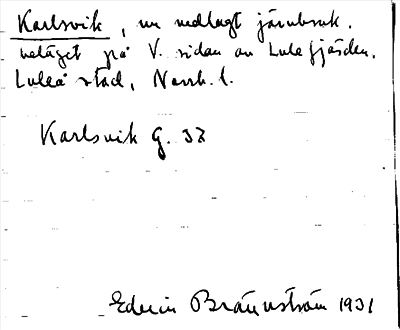 Karlsvik, nu nedlagt järnbruk.
beläget på V. sidan av Lulefjärden.
Luleå stad, Norrb. l.
Karlsvik G. 38
Edvin Brännström 1931